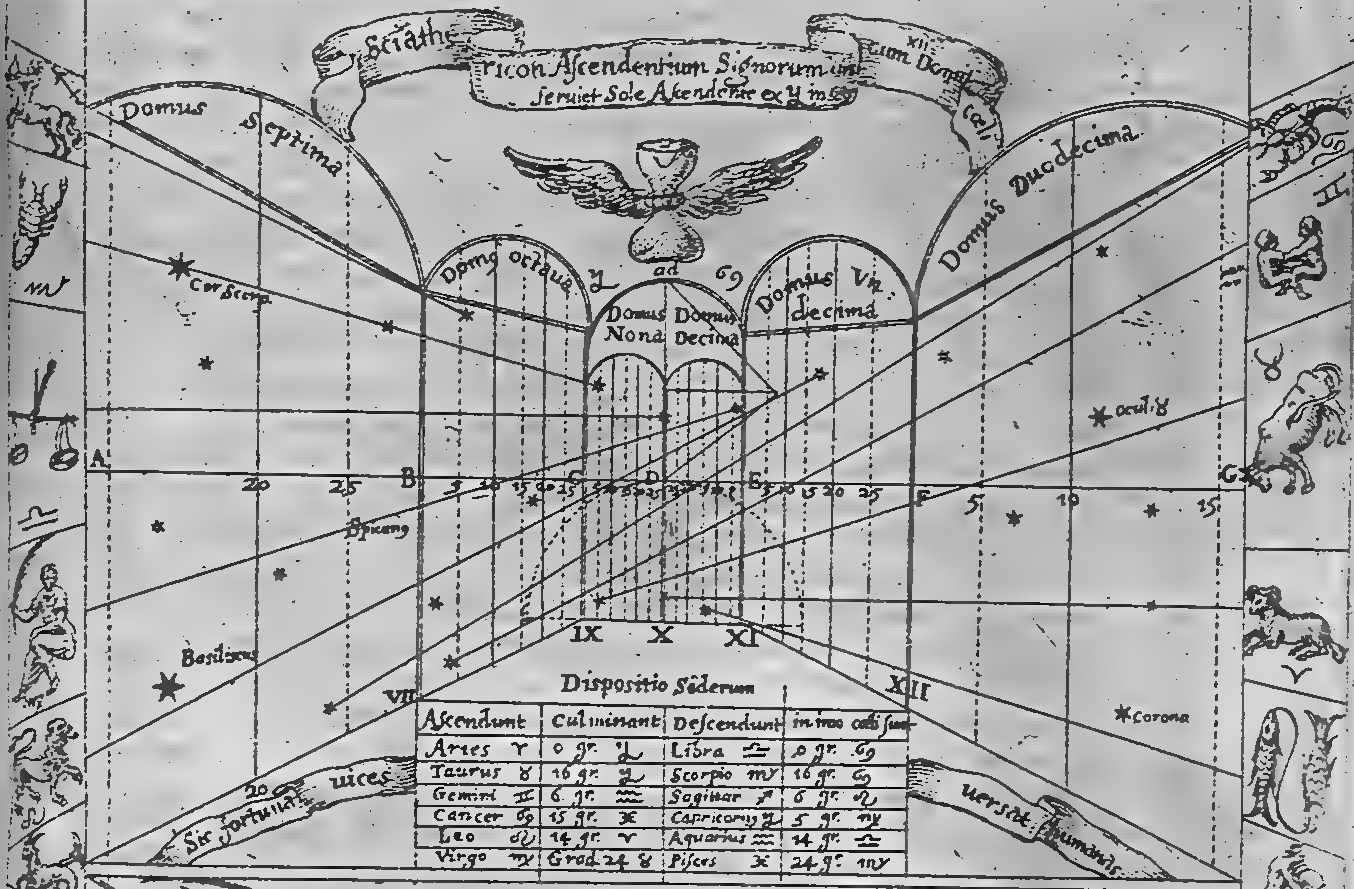 Sciathe
ricon Ascendentium Signorum
cum XII Domi
seruiet Sole Ascendente ex ♑ in ♋
cæli
Domus
Septima
Domus Duodecima
Domus octaua
♑ ad ♋
Domus Vn
decima
Domus Domus
Nona Decima
Cor Scorp
♏
♊
♉
ocul. ♉
A B C D E F G
20 25 5 10 15 20 25 5 10 15 20 25 5 10 15 20 25 5 10 15
♎
Spica ♍
Basiliscus
♈
IX X XI
VII XII
Corona
Dispositio Siderum
Ascendunt Culminant Descendunt in imo cœli sunt
Aries ♈ 0 gr. ♑ Libra ♎ 0 gr. ♋
Taurus ♉ 16 gr. ♑ Scorpio ♏ 16 gr. ♋
Gemini ♊ 6 gr. ♒ Sagittar ♐ 6 gr. ♌
Cancer ♋ 15 gr. ♓ Capricornus ♑ 5 gr. ♍
Leo ♌ 14 gr. ♈ Aquarius ♒ 14 gr. ♎
Virgo ♍ Grad. 24 ♉ Pisces ♓ 24 gr. ♏
20
Sic fortunæ vices
versat humanas